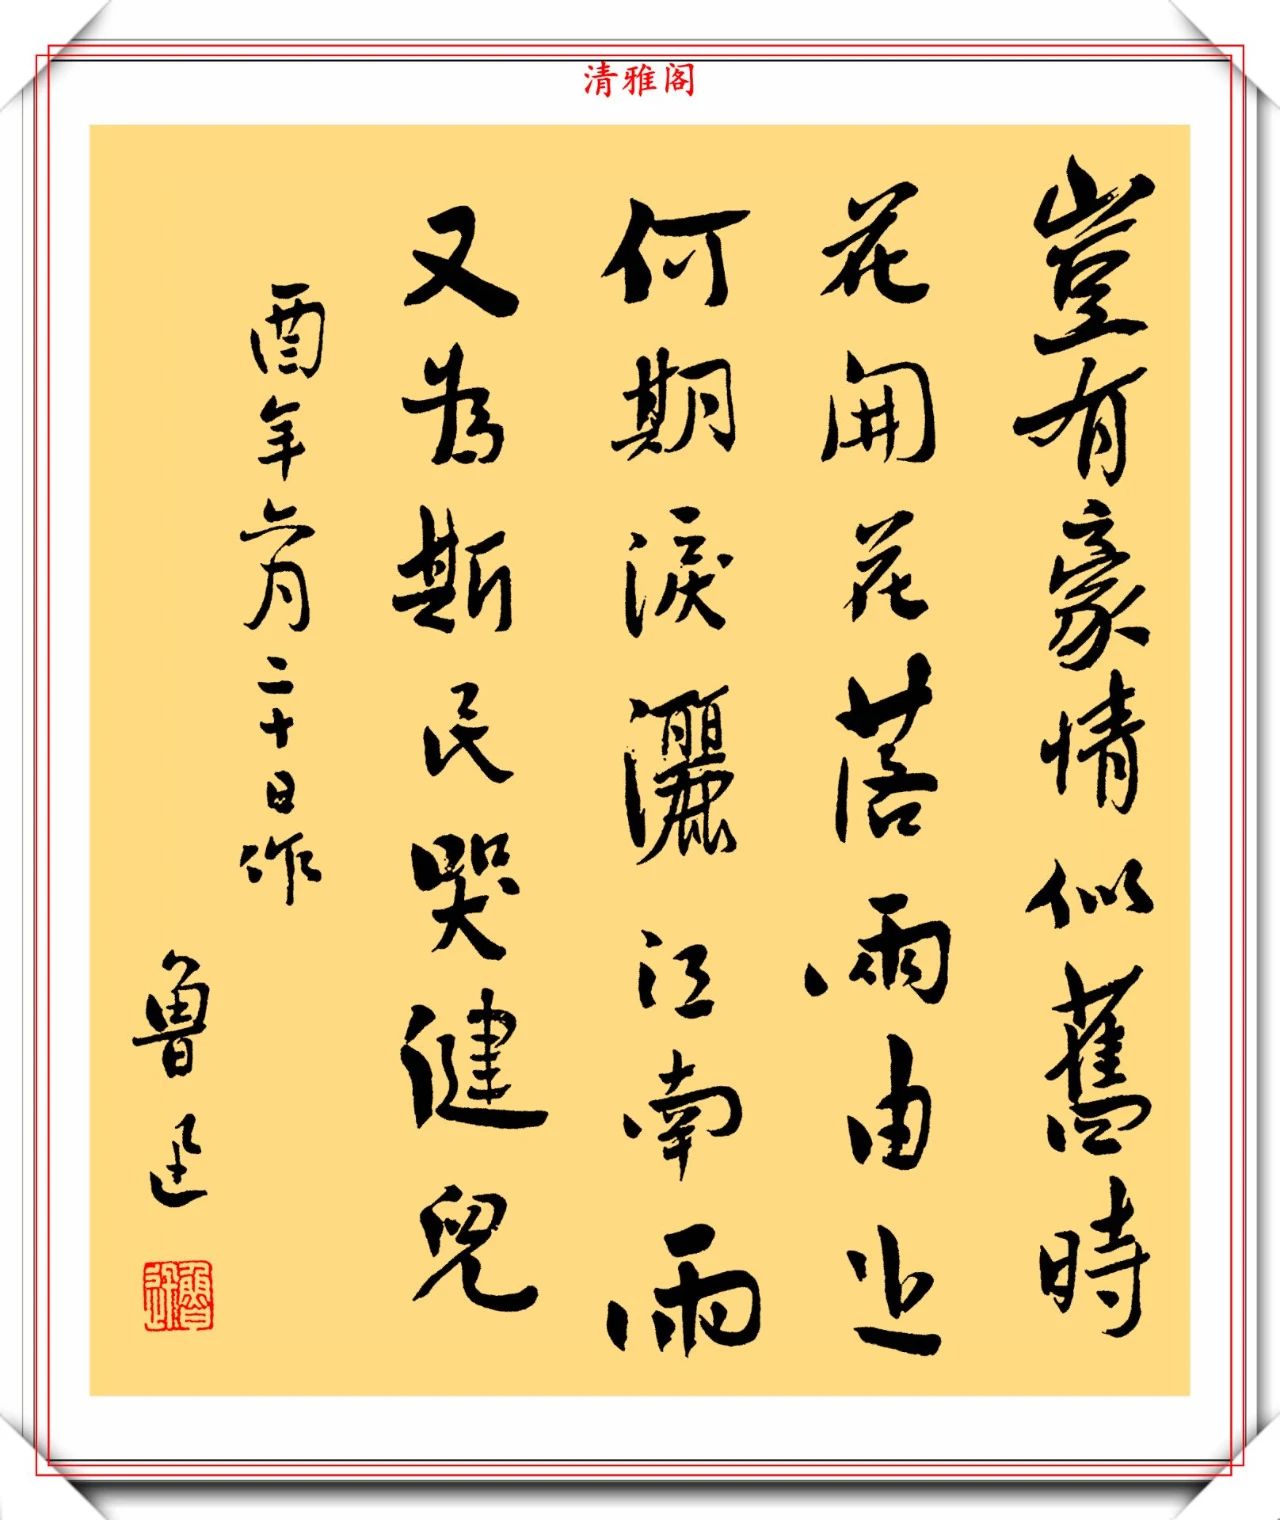 清雅阁
豈有豪情似舊時
花開花落兩由之
何期淚灑江南雨
又為斯民哭健兒
酉年六月二十日作
魯迅
魯迅